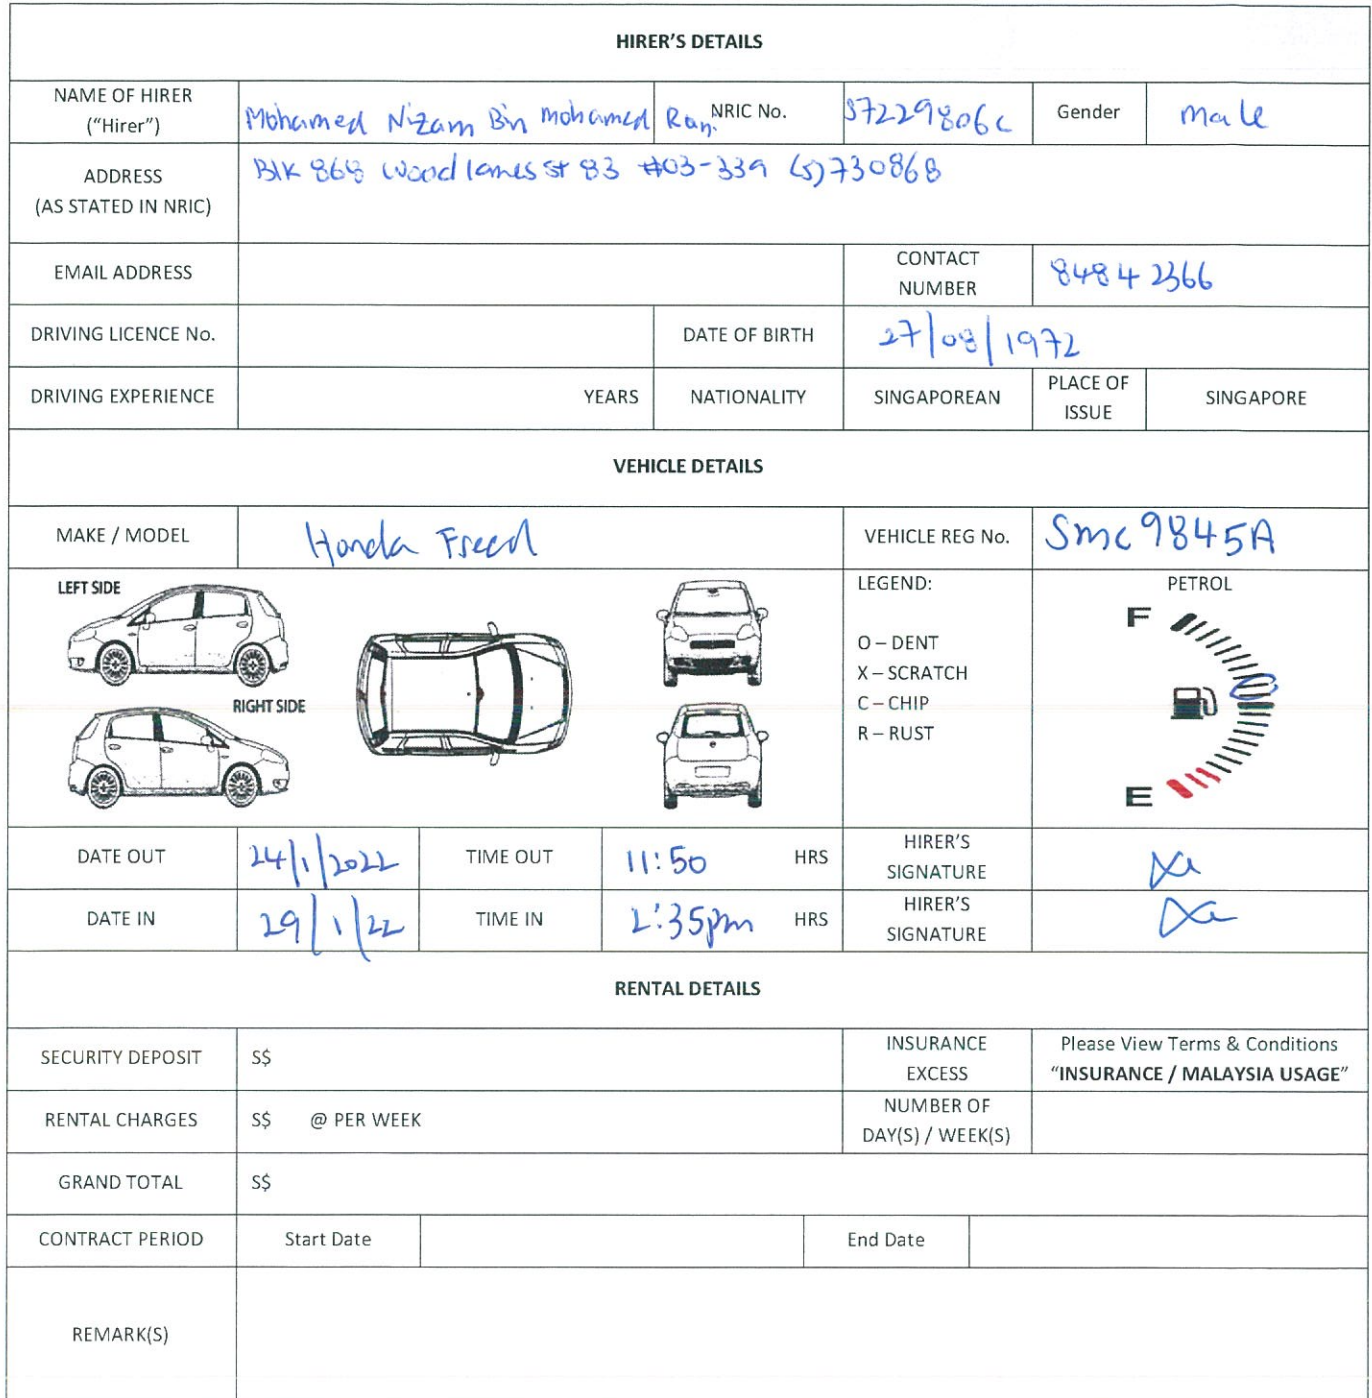 HIRER'S DETAILS
NAME OF HIRER ("Hirer") Mohamed Nizam Bin Mohamed Ran. NRIC No. S7229806C Gender Male
ADDRESS (AS STATED IN NRIC) Blk 868 Woodlands St 83 #03-339 (S)730868
EMAIL ADDRESS CONTACT NUMBER 8484 2366
DRIVING LICENCE No. DATE OF BIRTH 27/08/1972
DRIVING EXPERIENCE YEARS NATIONALITY SINGAPOREAN PLACE OF ISSUE SINGAPORE
VEHICLE DETAILS
MAKE / MODEL Honda Freed VEHICLE REG No. Smc9845A
LEFT SIDE
RIGHT SIDE
LEGEND:
O – DENT
X – SCRATCH
C – CHIP
R – RUST
PETROL
F
E
DATE OUT 24/1/2022 TIME OUT 11:50 HRS HIRER'S SIGNATURE
DATE IN 29/1/22 TIME IN 2:35pm HRS HIRER'S SIGNATURE
RENTAL DETAILS
SECURITY DEPOSIT S$ INSURANCE EXCESS Please View Terms & Conditions "INSURANCE / MALAYSIA USAGE"
RENTAL CHARGES S$ @ PER WEEK NUMBER OF DAY(S) / WEEK(S)
GRAND TOTAL S$
CONTRACT PERIOD Start Date End Date
REMARK(S)